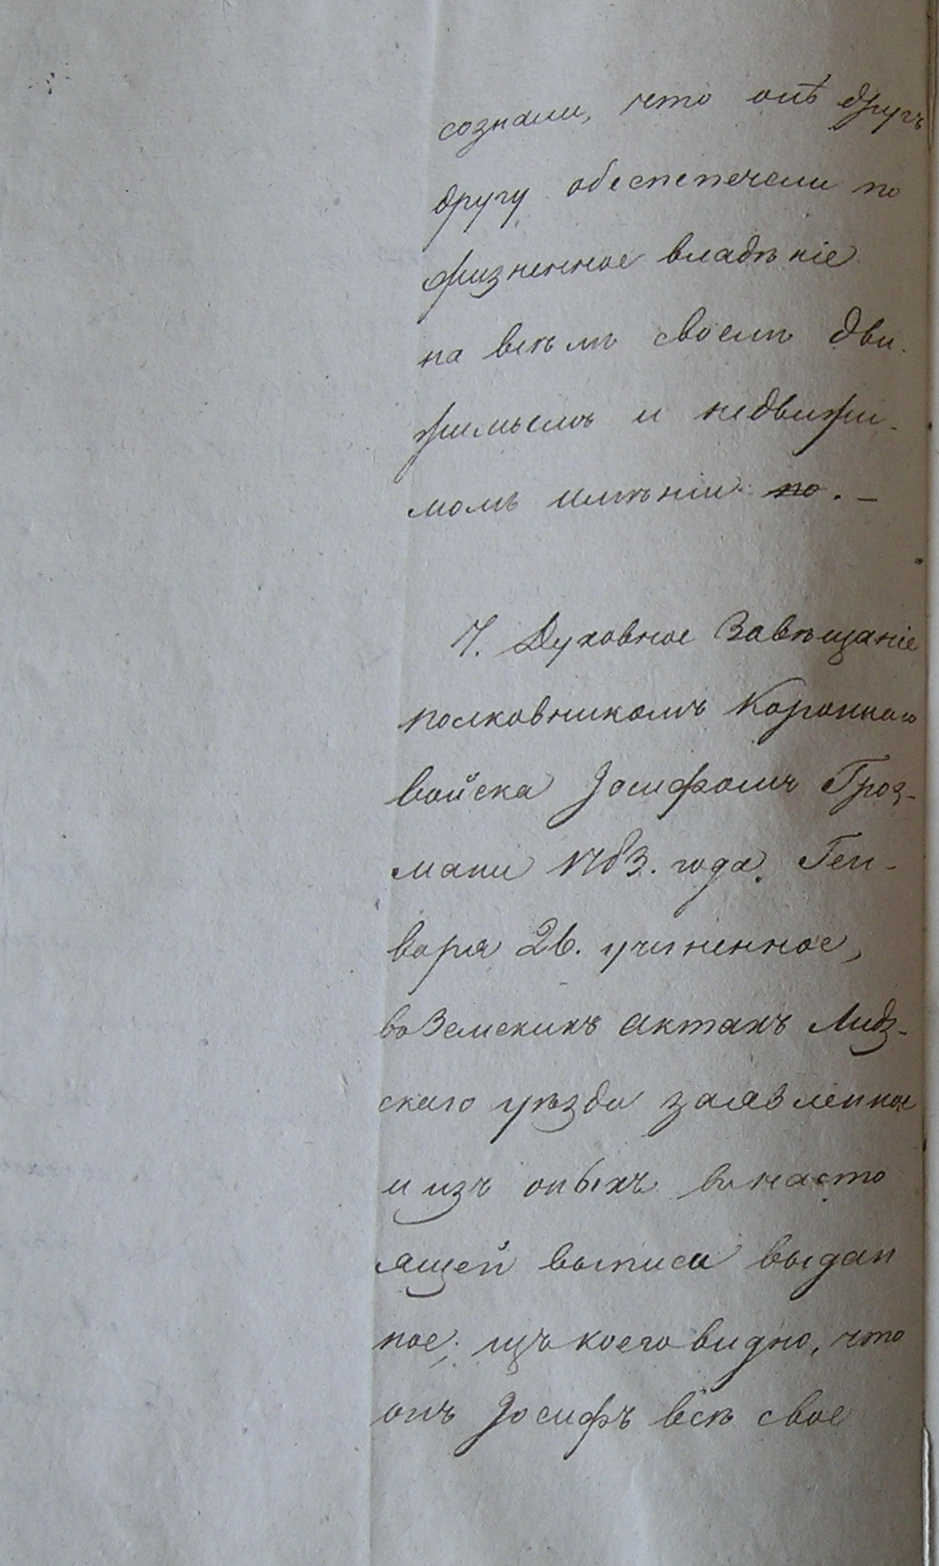 сознали, что онѣ другъ
другу обеспечели по
жизненное владѣніе
на всѣмъ своемъ дви-
жимымъ и недвижи-
момъ имѣніи по. –
7. Духовное Завѣщаніе
полковникомъ Короннаго
войска Іосифомъ Гроз-
мани 1783. года. Ген-
варя 26. учиненное,
во Земскихъ актахъ Лидз-
скаго уѣзда заявленное
и изъ оныхъ в насто
ящей выписи выдан
ное; изъ коего видно, что
онъ Іосифъ всѣ свое